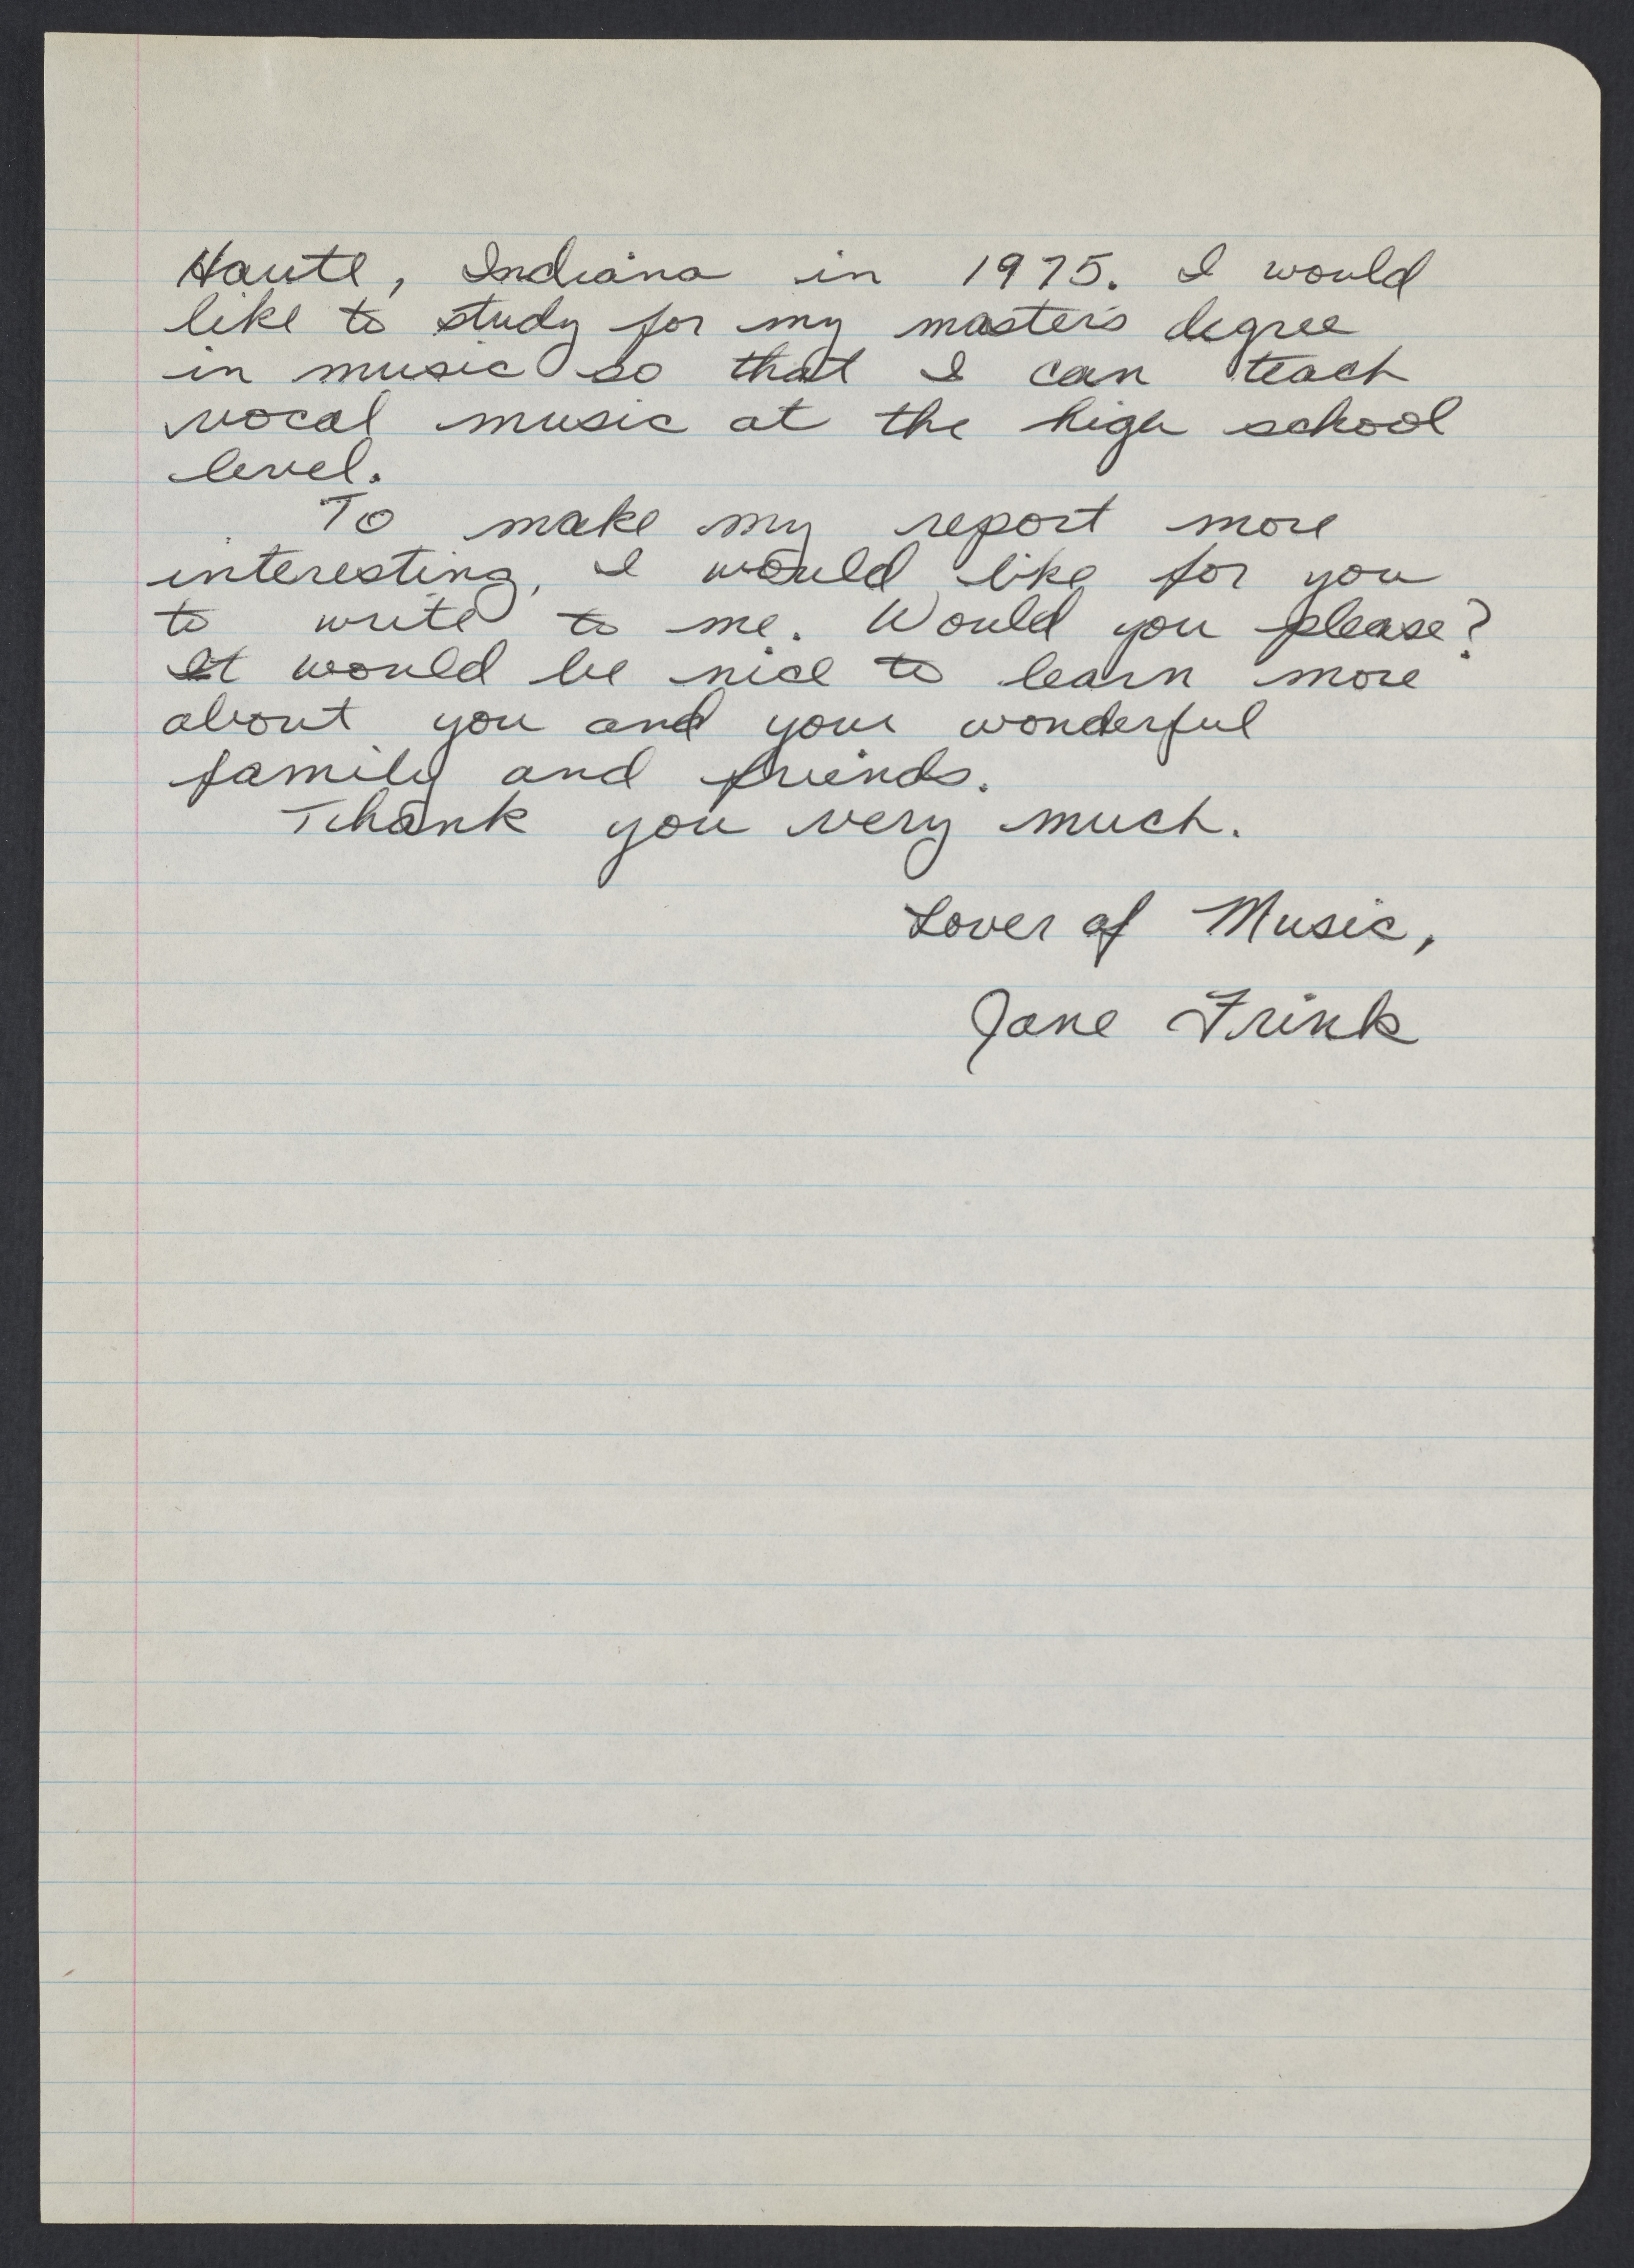 Haute, Indiana in 1975. I would
like to study for my master's degree
in music so that I can teach
vocal music at the high school
level.
To make my report more
interesting, I would like for you
to write to me. Would you please?
It would be nice to learn more
about you and your wonderful
family and friends.
Thank you very much.
Lover of Music,
Jane Frink